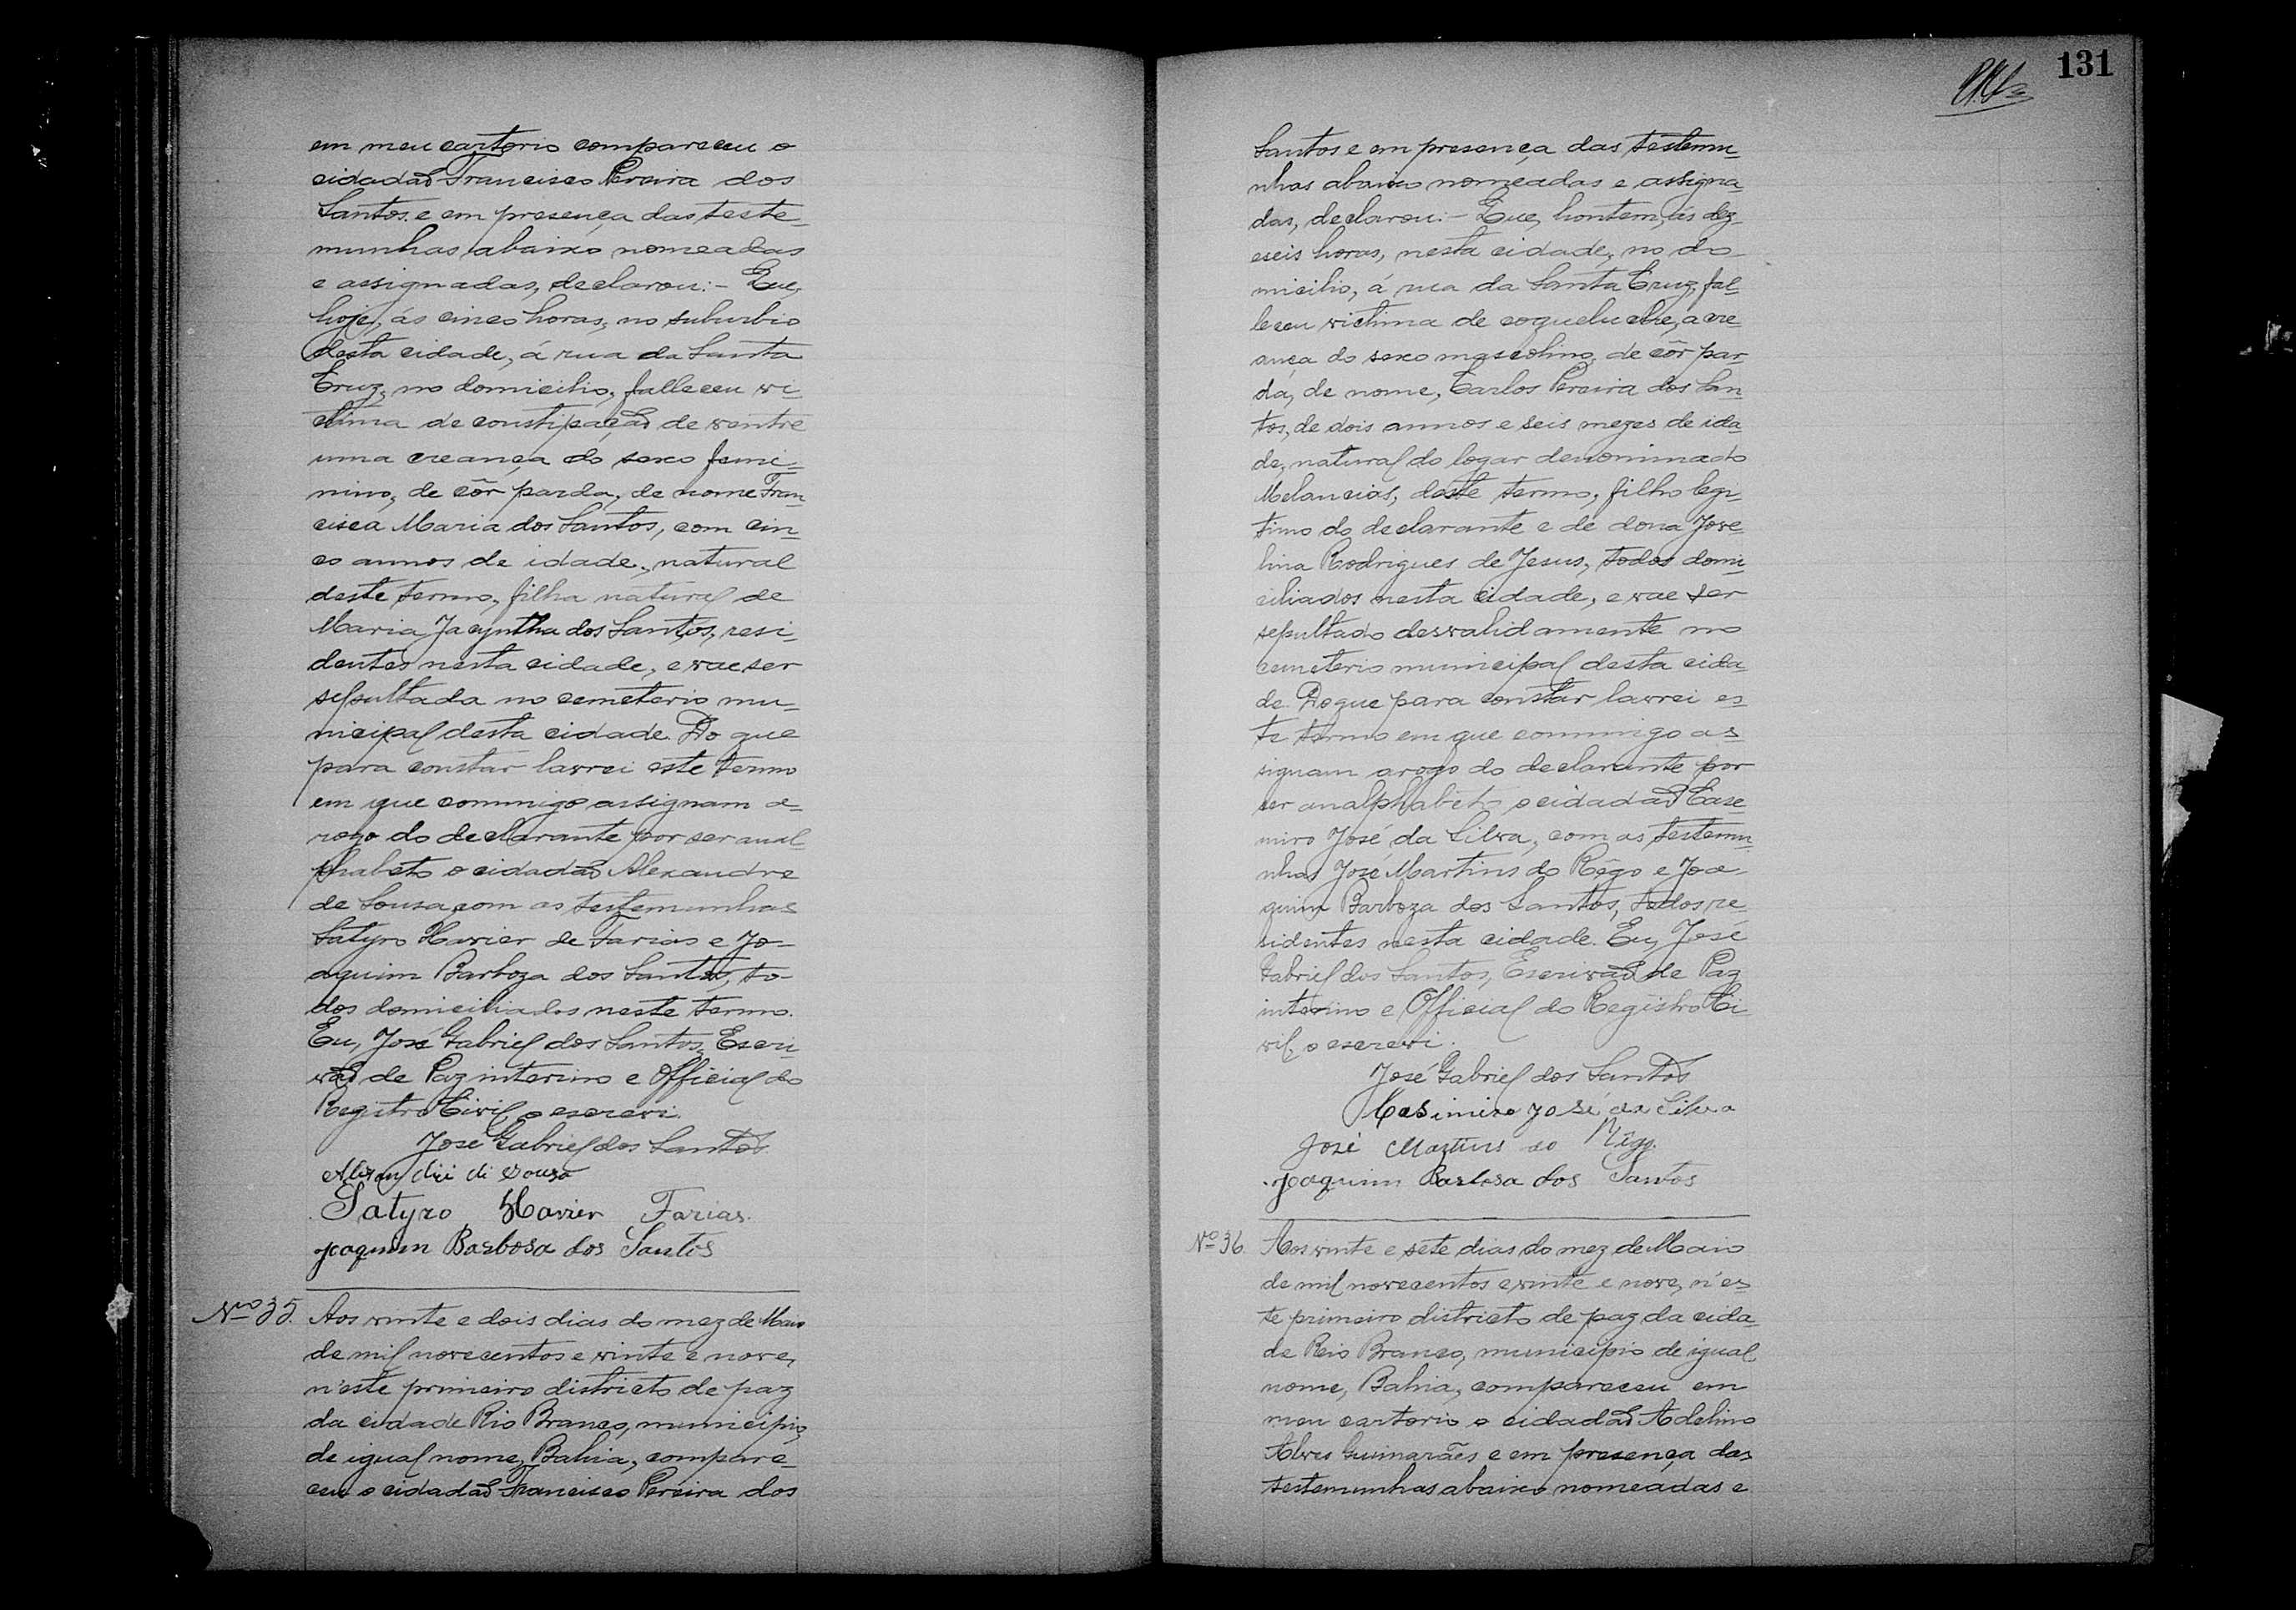 em meu cartorio compareceu o
cidadão Francisco Pereira dos
Santos e em presença das teste-
munhas abaixo nomeadas
e assignadas, declarou:- Que,
hoje, ás cinco horas, no suburbio
desta cidade, á rua da Santa
Cruz, no domicilio, falleceu vi-
ctima de constipação de ventre
uma creança do sexo femi-
nino, de côr parda, de nome Fran-
cisca Maria dos Santos, com cin-
co annos de idade, natural
deste termo, filha natural de
Maria Jacyntha dos Santos, resi-
dentes nesta cidade, e vae ser
sepultada no cemeterio mu-
nicipal desta cidade. Do que
para constar lavrei este termo
em que commigo assignam a-
rogo do declarante por ser anal-
phabeto o cidadão Alexandre
de Sousa com as testemunhas
Satyro Xavier de Farias e Jo-
aquim Barboza dos Santos, to-
dos domiciliados neste termo.
Eu, José Gabriel dos Santos, Escri-
vão de Paz interino e Official do
Registro Civil, o escrevi.
José Gabriel dos Santos
Alexandri di Souza
Satyro Xavier Farias.
Joaquim Barbosa dos Santos
Nº 35. Aos vinte e dois dias do mez de Maio
de mil novecentos e vinte e nove,
n'este primeiro districto de paz
da cidade Rio Branco, municipio
de igual nome, Bahia, compare-
ceu o cidadão Francisco Pereira dos
131
Santos e em presença das testemu-
nhas abaixo nomeadas e assigna-
das, declarou:- Que, hontem, ás dez-
eseis horas, nesta cidade, no do-
micilio, á rua da Santa Cruz, fal-
leceu victima de coqueluche, a cre-
ança do sexo mascolino, de côr par-
da, de nome, Carlos Pereira dos San-
tos, de dois annos e seis mezes de ida-
de, natural do logar denominado
Melancias, deste termo, filho legi-
timo do declarante e de dona Jove-
lina Rodrigues de Jesus, todos domi-
ciliados nesta cidade, e vae ser
sepultado desvalidamente no
cemeterio municipal desta cida-
de. Do que para constar lavrei es-
te termo em que commigo as-
signam arogo do declarante por
ser analphabeto o cidadão Case-
miro José da Silva, com as testemu-
nhas José Martins do Rêgo e Joa-
quim Barboza dos Santos, todos re-
sidentes nesta cidade. Eu, José
Gabriel dos Santos, Escrivão de Paz
interino e Official do Registro Ci-
vil, o escrevi.
José Gabriel dos Santos
Casimiro José da Silva
José Martins do Rêgo
Joaquim Barbosa dos Santos
Nº 36. Aos vinte e sete dias do mez de Maio
de mil novecentos e vinte e nove, n'es-
te primeiro districto de paz da cida-
de Rio Branco, municipio de igual
nome, Bahia, compareceu em
meu cartorio o cidadão Adelino
Alves Guimarães e em presença das
testemunhas abaixo nomeadas e